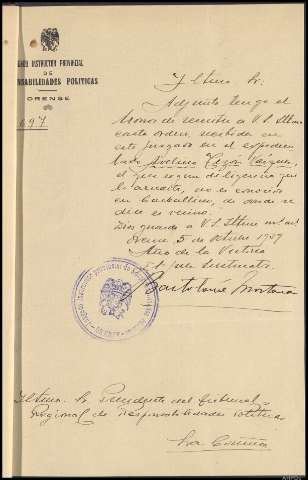 INSTRUCTOR PROVINCIAL
DE
POLITICAS
ORENSE
Iltmo Sr.
Adjunto tengo el
honor de remitir a V.S. Iltma
carta orden, recibida en
este juzgado en el expediente
Avelino
el que segun diligencia que
lo acredita, no es conocido
en Carballino, de donde se
dice es vecino.
Dios guarde a V.S. Iltma
Orense 5 de octubre 1939
Año de la Victoria
El Juez Instructor
Bartolomé
Iltmo. Sr Presidente del Tribunal
Regional de Responsabilidades Políticas
La Coruña